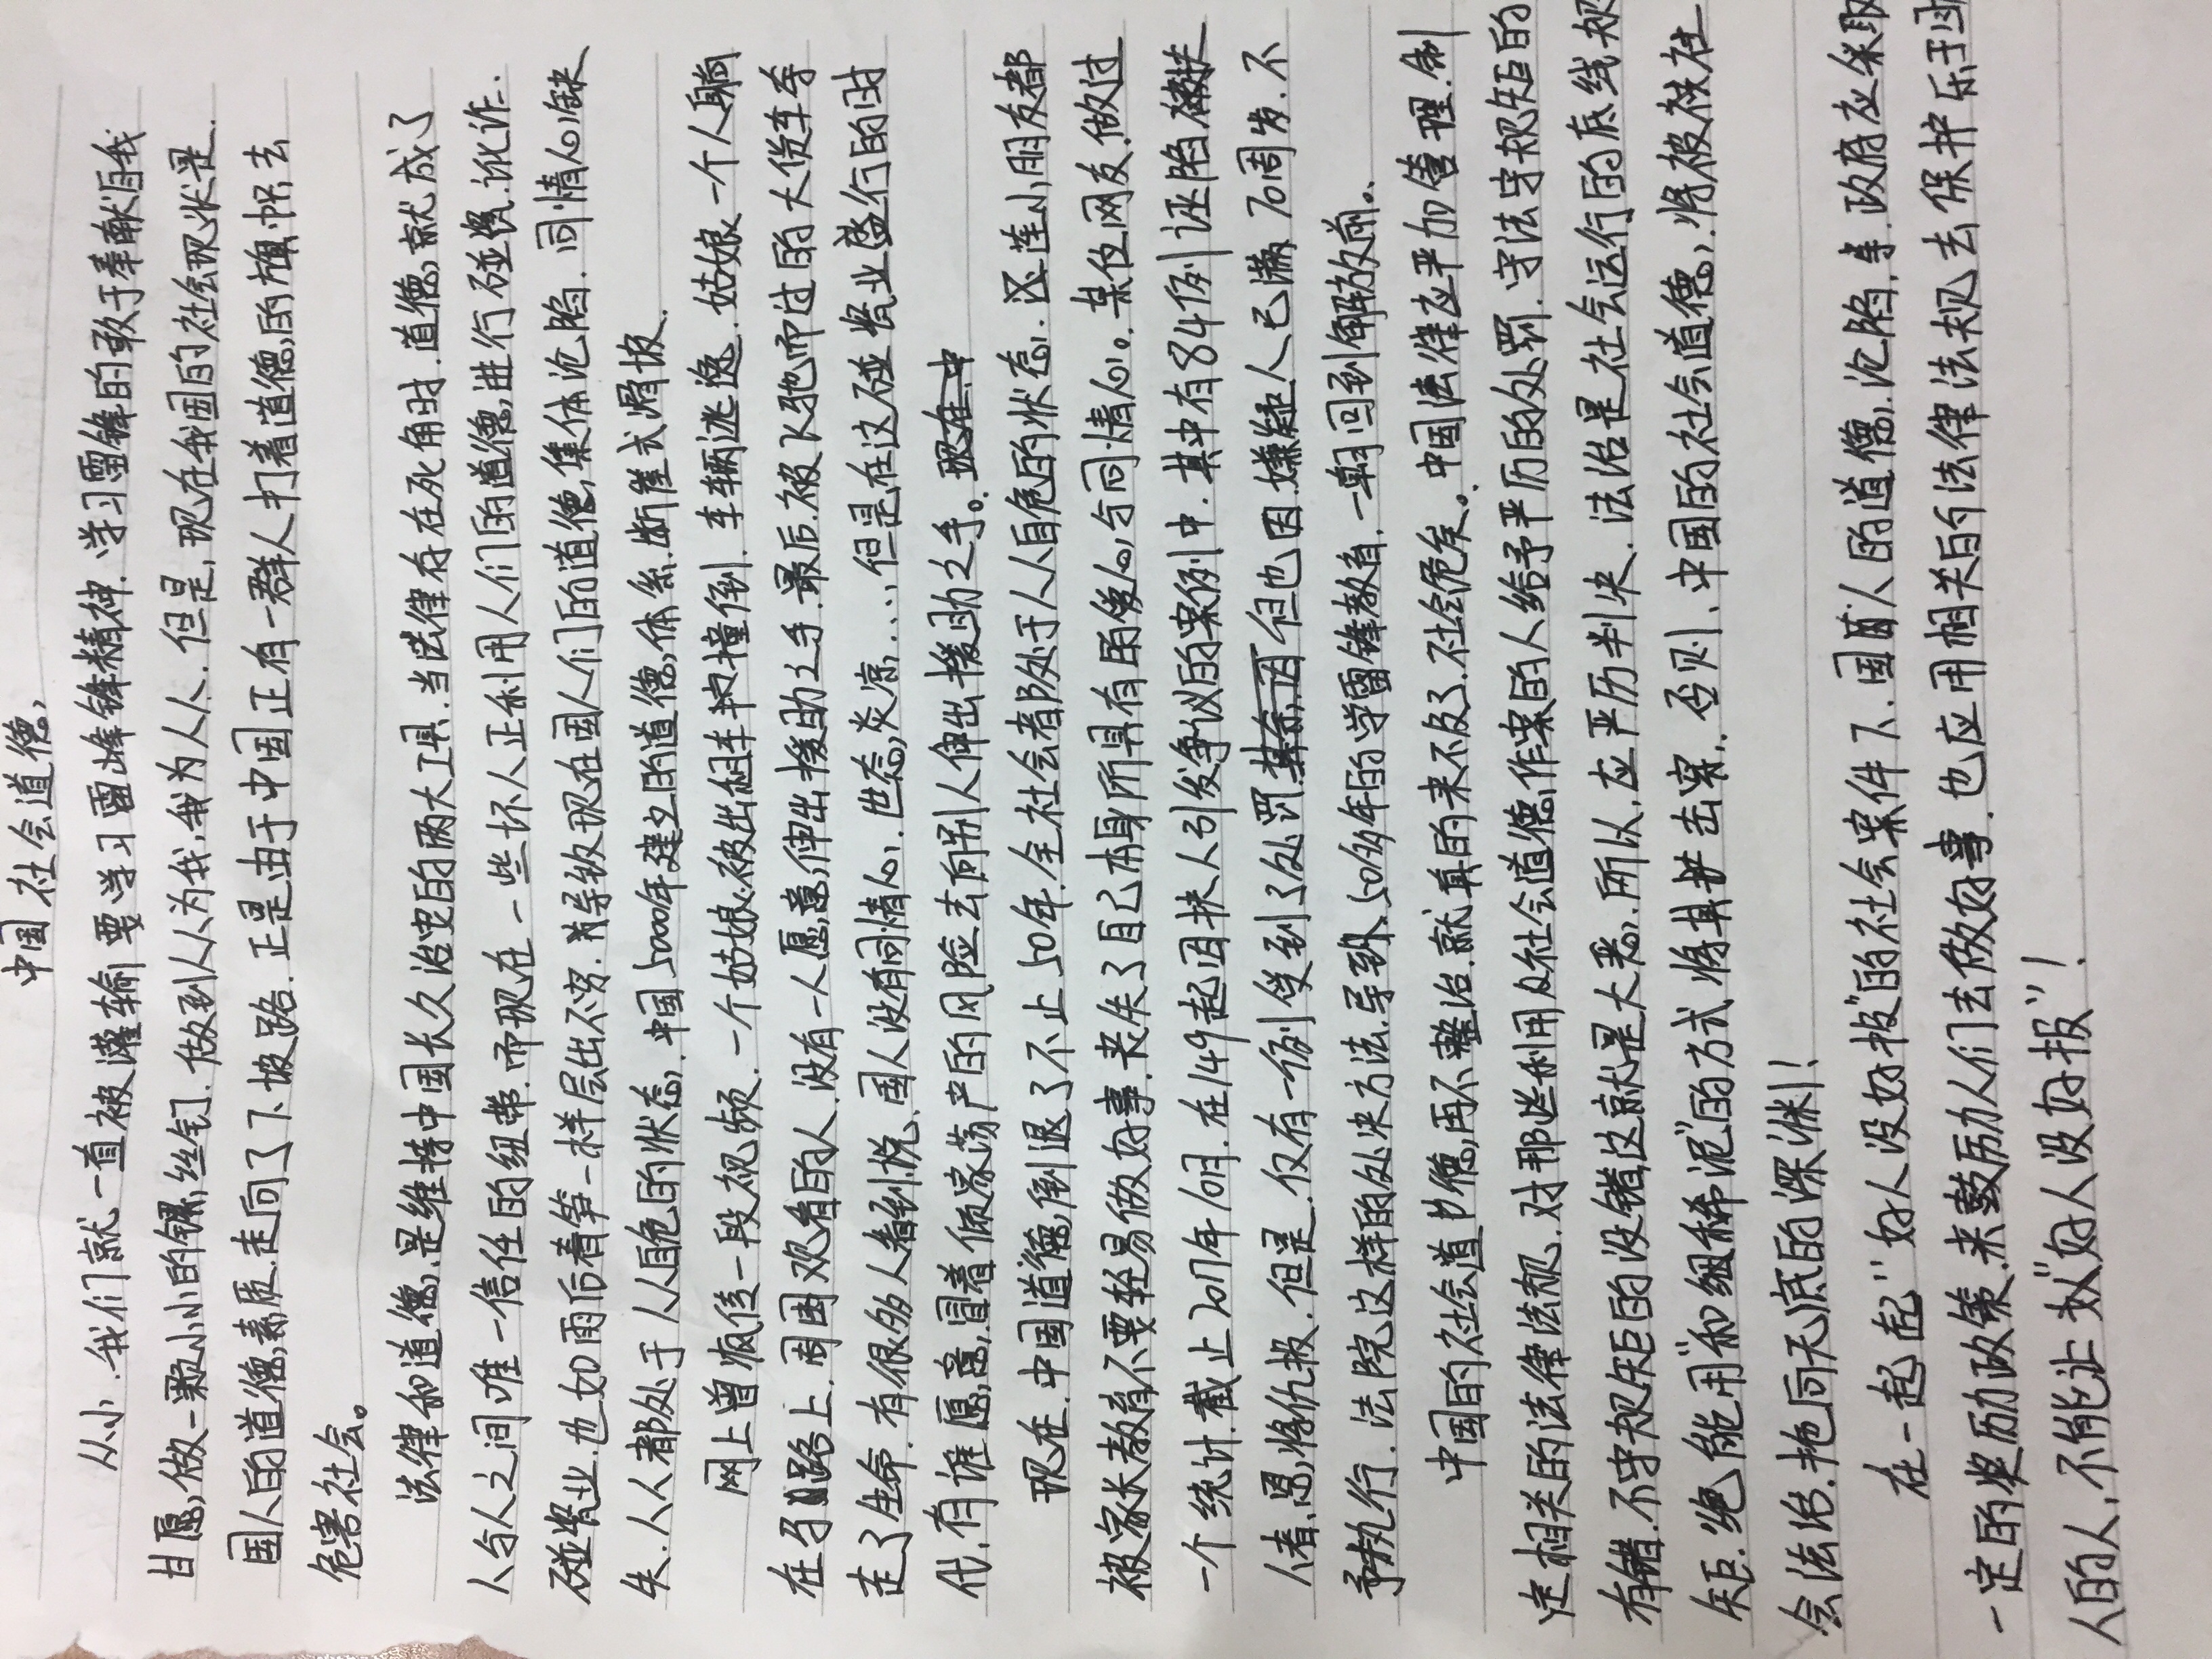 中国社会道德
从小.我们就一直被灌输要学习雷峰锋精神.学习雷锋的敢于奉献自我
甘愿做一颗小小的镙丝钉.做到人人为我,我为人人.但是,现在我国的社会现状是.
国人的道德素质.走向了下坡路.正是由于中国正有一群人打着道德的旗帜去
危害社会。
法律和道德.是维持中国长久治安的两大工具.当法律存在死角时.道德就成了
人与人之间唯一信任的纽带.而现在一些坏人正利用人们的道德,进行碰瓷.讹诈.
碰瓷业.也如雨后春笋一样层出不穷.导致现在国人们的道德,集体沦陷.同情心缺
失.人人都处于人人自危的状态,中国5000年建立的道德体系.断崖式滑坡.
网上曾疯传一段视频.一个姑娘.被出租车撞倒.车辆逃逸.姑娘一个人躺
在马路上.周围观看的人.没有一人愿意伸出援助之手.最后.被飞驰而过的大货车夺
走了生命.有很多人看到说.国人没有同情心.世态炎凉...但是.在这碰瓷业盛行的时
代.有谁愿意冒着倾家荡产的风险去向别人伸出援助之手。现在.中
现在.中国道德,倒退了不止50年.全社会都处于人人自危的状态.这连小朋友都
被家长教育不要轻易做好事.丧失了自己本身所具有的爱心与同情心。某位网友.做过
一个统计.截止2017年10月.在149起因扶人引发争议的案例中.其中有84例诬陷
人者.恩将仇报.但是.仅有一例受到了处罚.但也因嫌疑人已满70周岁.不
予执行.法院这样的处决方法.导致50多年的学雷锋教育.一朝回到解放前..
中国的社会道德,再不整治.就真的来不及了.社会危矣。中国法律应严加管理.制
定相关的法律法规.对那些利用社会道德作案的人给予严历的处罚.守法守规矩的
有错.不守规矩的没错这就是大恶.所以.应严历判决.法治是社会运行的底线规
矩.绝能用“和细稀泥”的方式将其击穿.否则.中国的社会道德,将被被社
会法治.拖向无底的深渊!
在一起起“好人没好报”的社会案件下.国人的道德.沦陷.政府应采取
一定的奖历政策.来鼓厉人们去做好事.也应用相关的法律法规去保护乐于助
人的人.不能让“好人没好报”!